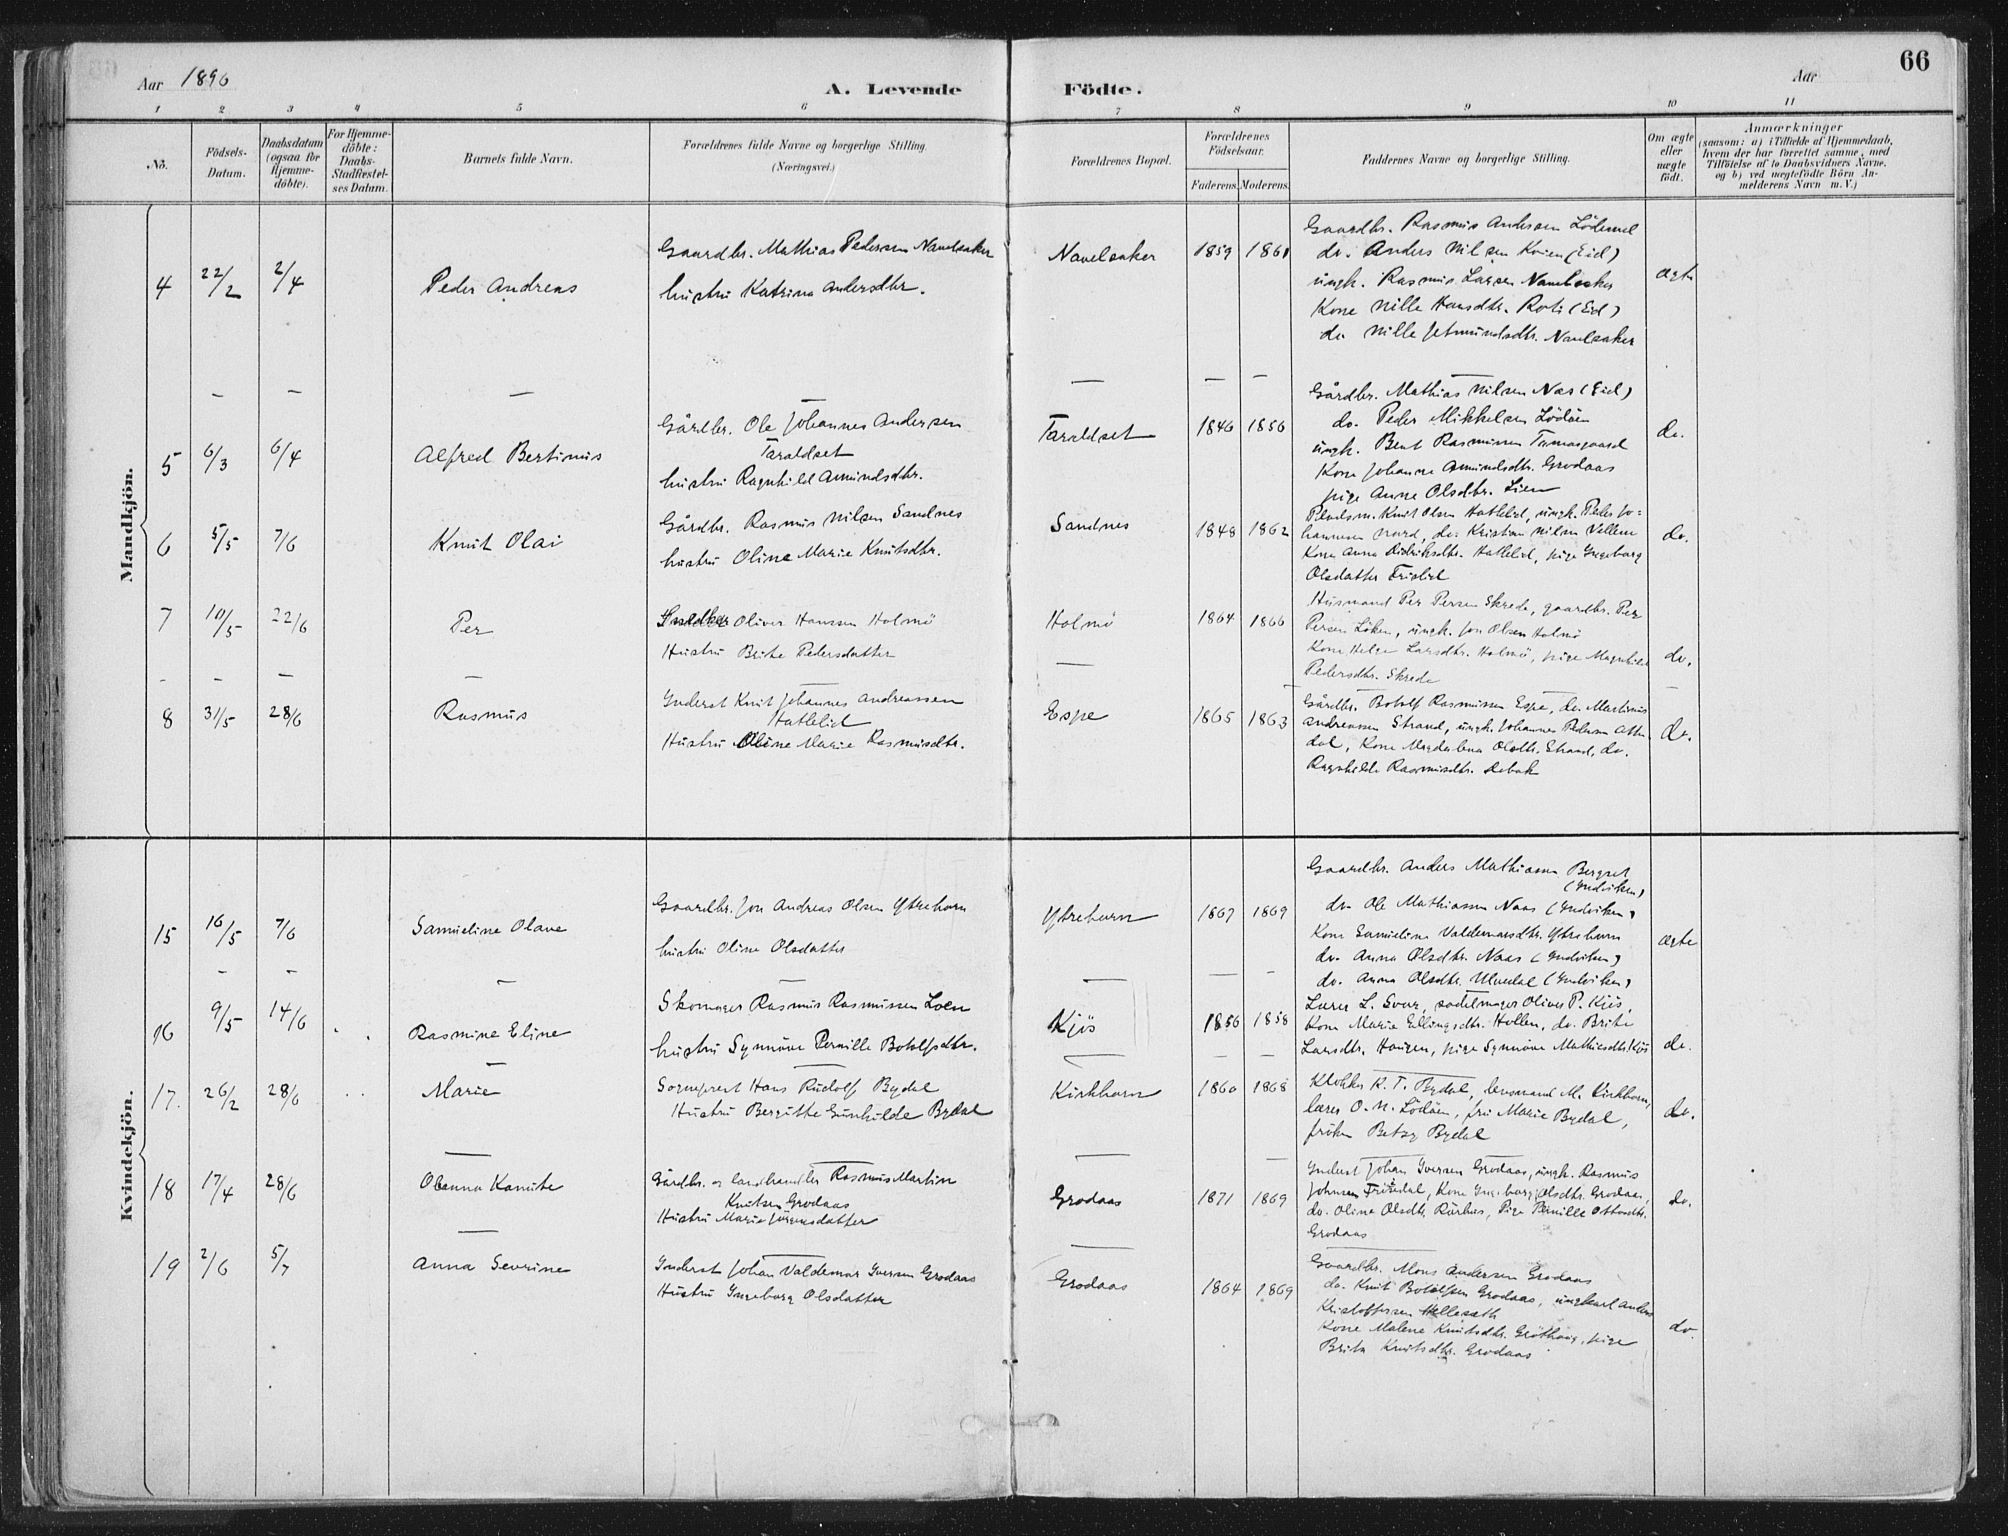 66
Aar 1890
A. Levende
Födte.
Aar
1 2 3 4 5 6 7 8 9 10 11
No.
Födsels-
Datum.
Daabsdatum
(ogsaa for
Hjemme-
döbte).
For Hjemme-
döbte:
Daabs-
Stadfæstel-
ses Datum.
Barnets fulde Navn.
Forældrenes fulde Navne og borgerlige Stilling.
(Næringsvei.)
Forældrenes Bopæl.
Forældrenes
Födselsaar.
Faderens. Moderens.
Faddernes Navne og borgerlige Stilling.
Om ægte
eller
uægte
födt.
Anmærkninger
(saasom: a) i Tilfælde af Hjemmedaab,
hvem der har forrettet samme, med
Tilföielse af to Daabsvidners Navne,
og b) ved uægtefödte Börn An-
melderens Navn m. V.)
Mandkjön.
4 22/2 2/4 Peder Andreas
Gaardbr. Mathias Pedersen Navelsaker
hustru Katrina Andersdtr.
Navelsaker 1859 1861
Gaardbr. Rasmus Andersen Lödemel
do. Anders Nilsen Kvien (Eid)
ungk. Rasmus Larsen Navelsaker
Kone Nille Hansdtr. Roti (Eid)
do. Nille Jetmundsdtr. Navelsaker
ægte
5 6/3 6/4 Alfred Bertinus
Gårdbr. Ole Johannes Andersen
Taraldset
hustru Ragnhild Amundsdtr.
Taraldset 1846 1856
Gårdbr. Mathias Nilsen Næs (Eid)
do. Peder Mikkelsen Lödöen
ungk. Bent Rasmussen Tomasgaard
Kone Johanne Amundsdtr. Grodaas
pige Anne Olsdtr. Lien
do.
6 5/5 7/6 Knut Olai
Gårdbr. Rasmus Nilsen Sandnes
hustru Oline Marie Knutsdtr.
Sandnes 1848 1862
Knut Olsen Hatlelid, ungk. Peder Jo-
hannesen Nord, do. Kristian Nilsen
Kone Anna Didriksdtr. Hatlelid, pige Ingeborg
Olsdatter
do.
7 10/5 22/6 Per
Snedker Oliver Hanssen Holmö
Hustru Brite Pedersdatter
Holmö 1864 1866
Husmand Per Persen Skrede, gaardbr. Per
Persen Löken, ungk. Jon Olsen Holmö
Kone Helge Larsdtr. Holmö, pige Magnhild
Pedersdtr. Skrede
do.
8 31/5 28/6 Rasmus
Inderst Knut Johannes Andreassen
Hatlelid
Hustru Oline Marie Rasmusdtr.
Espe 1865 1863
Gårdbr. Botolf Rasmussen Espe, do. Martinus
Andreassen Strand, ungk. Johannes Pedersen Otte-
dal, Kone Magdalena Olsdtr. Strand, do.
Ragnhilde Rasmusdtr. Rebak
do.
Kvindekjön.
15 16/5 7/6 Samueline Olave
Gaardbr. Jon Andreas Olsen Ytrehorn
hustru Oline Olsdatter
Ytrehorn 1867 1869
Gaardbr. Anders Mathiassen Bergset
(Indviken)
do. Ole Mathiassen Naas (Indviken)
Kone Samueline Valdemarsdtr. Ytrehorn
do. Anna Olsdtr. Naas (Indviken)
do. Anna Olsdtr. Ulvedal (Indviken)
ægte
16 9/5 14/6 Rasmine Eline
Skomager Rasmus Rasmussen Loen
hustru Synnöve Pernille Botolfsdtr.
Kjös 1856 1858
Lærer L. Svor, sadelmager Oliver P. Kjös,
Kone Marie Ellingsdtr. Hollen, do. Brite
Larsdtr. Haugen, pige Synnöve Mathiasdtr. Kjös
do.
17. 26/2 28/6 Marie
Sogneprest Hans Rudolf Bydal
Hustru Bergitte Gunhilde Bydal
Kirkhorn 1860 1868
Klokker K. T. Bydal, lensmand M. Kirkhorn,
lærer O. N. Lödöen, fru Marie Bydal,
fröken Betzy Bydal
do.
18 17/4 28/6 Oleanna Kanute
Gårdbr. og landhandler Rasmus Martin
Knutsen Grodaas
Hustru Marie Jörgensdatter
Grodaas 1871 1869
Inderst Johan Iversen Grodaas, ungk. Rasmus
Johnsen Frisedal, Kone Ingeborg Olsdtr. Grodaas,
do. Oline Olsdtr. Rörhus, Pige Pernille Ottosdtr.
Grodaas
do.
19 2/6 5/7 Anna Severine
Inderst Johan Valdemar Iversen Grodaas
Hustru Ingeborg Olsdatter
Grodaas 1864 1869
Gaardbr. Mons Andersen Grodaas
do. Knut Botolfsen Grodaas, ungkarl Anders
Kristoffersen Hellesæth
Kone Malene Knutsdtr. Gröthaug, pige
Brita Knutsdtr. Grodaas
do.